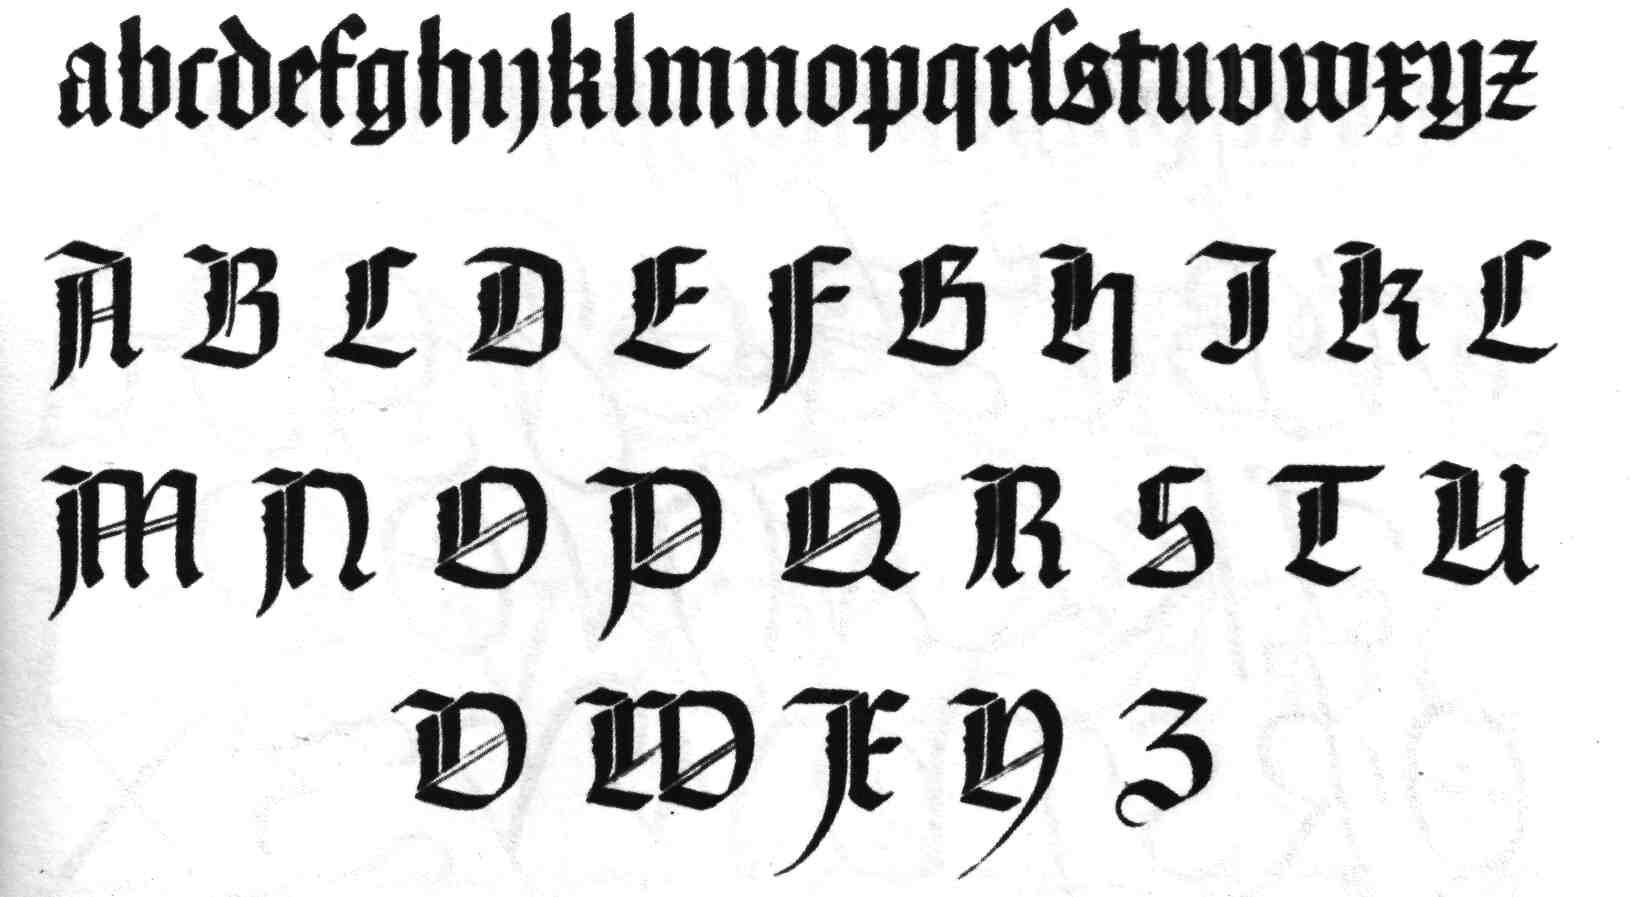 abcdefghijklmnopqrſstuvwxyz
A B C D E F G H I K L
M N O P Q R S T U
V W X Y Z